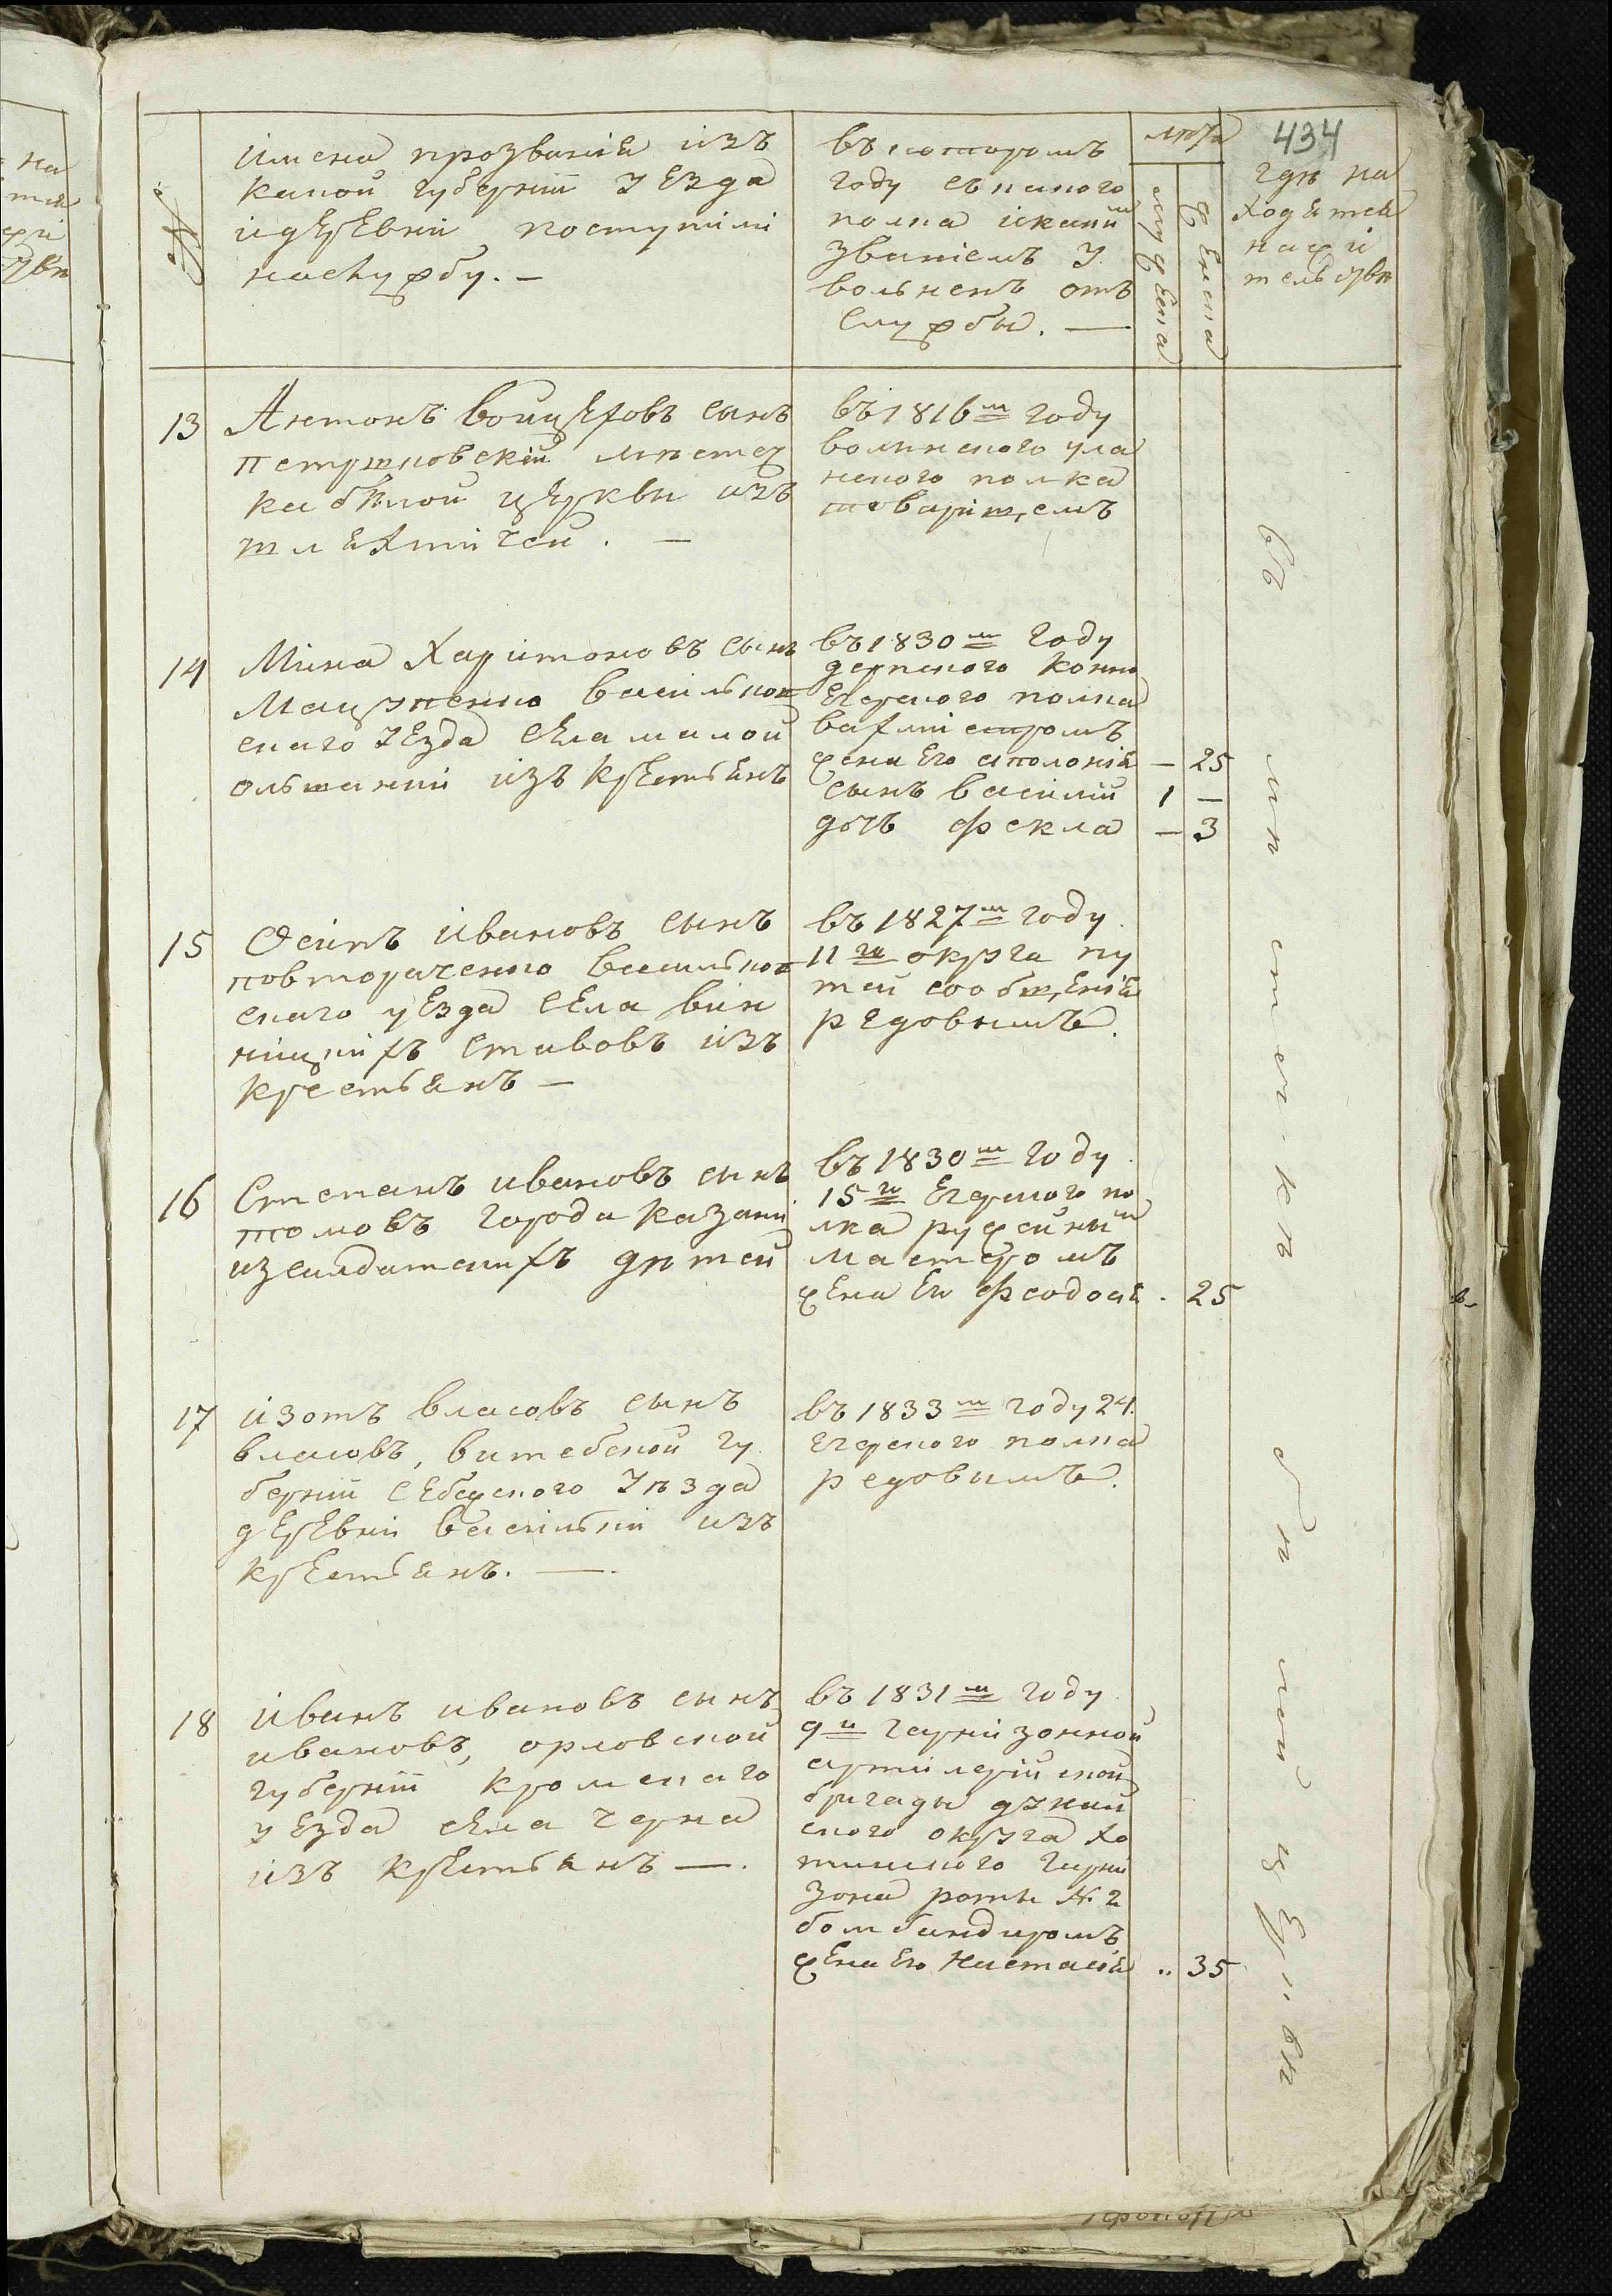 434
№
имена прозванія изъ
какой губерніи уезда
идеревни поступили
наслужбу. —
въ которомъ
году съ какого
полка икаким
званіемъ у
воленъ отъ
службы. —
лѣта
муж еска
женска
гдѣ на
ходятся
на жи
тельствѣ
13
Антонъ Войцеховъ сынъ
петушковскій мѣстеч
ка бѣлой церкви изъ
шляхтичей. —
въ 1816м году
волынского ула
нского полка
товарищемъ
14
Мина Харитоновъ сынъ
Мацуненко васильков
скаго уезда села малой
ольшанки изъ крестьянъ
въ 1830м году
дерпского конно
егерского полка
вахмистромъ
жена его аполонія — 25
сынъ василій 1 —
дочь фекла — 3
15
Осипъ ивановъ сынъ
повтораченко васильков
скаго уезда села вин
ницкихъ ставовъ изъ
крестьянъ —
въ 1827м году
11го округа пу
тей сообщенія
рядовымъ.
16
Степанъ ивановъ сынъ
томовъ города казани
изсалдатскихъ дѣтей
въ 1830м году
15го Егерского по
лка ружейным
мастеромъ
жена ею феодосія . 25
17
изотъ власовъ сынъ
власовъ, витебской гу
берніи себежского уѣзда
деревни васильки изъ
крестьянъ. —
въ 1833м году 24.
егерского полка
редовымъ.
18
иванъ ивановъ сынъ
ивановъ, орловской
губерніи кромскаго
уезда села черна
изъ крестьянъ —.
въ 1831м году
9й гарнизонной
артилерійской
бригады дунай
ского округа хо
тинского гарни
зона роты №2
бомбандиромъ
жена его Настасія .. 35
въ мѣстечкѣ бѣлой церквѣ